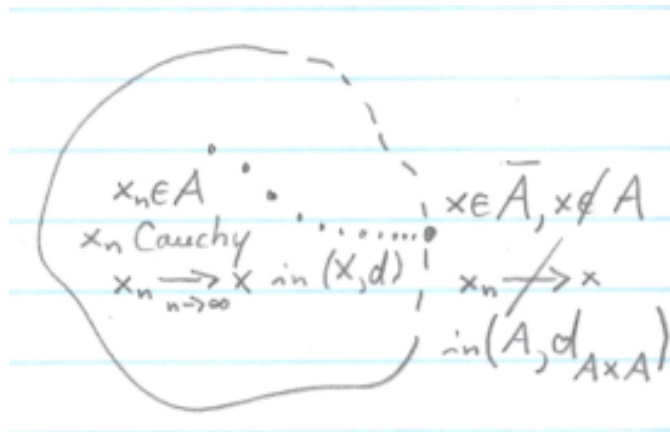 xₙ ∈ A
xₙ Cauchy
xₙ ⟶ x in (X,d)
n→∞
x ∈ Ā, x ∉ A
xₙ ↛ x
in (A, d_{A×A})